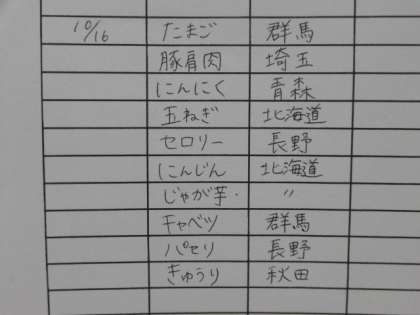 10/16 たまご 群馬
豚肩肉 埼玉
にんにく 青森
玉ねぎ 北海道
セロリー 長野
にんじん 北海道
じゃが芋・ 〃
キャベツ 群馬
パセリ 長野
きゅうり 秋田